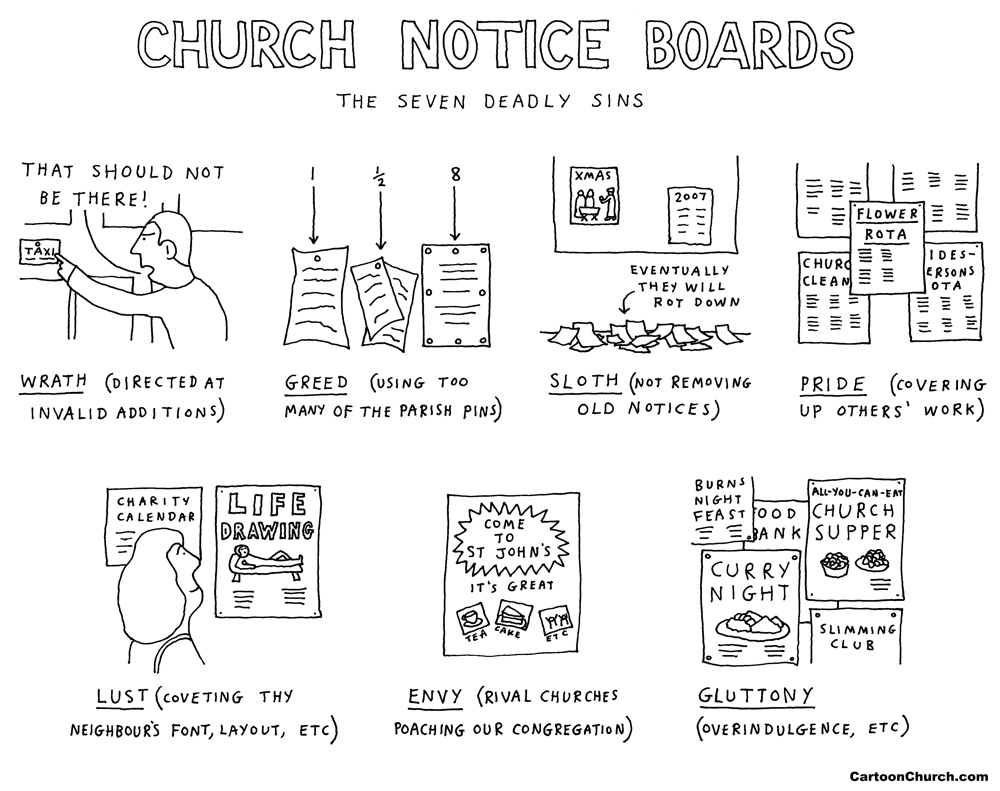 CHURCH NOTICE BOARDS
THE SEVEN DEADLY SINS
THAT SHOULD NOT
BE THERE!
TAXI
WRATH (DIRECTED AT
INVALID ADDITIONS)
1
½
8
GREED (USING TOO
MANY OF THE PARISH PINS)
XMAS
2007
EVENTUALLY
THEY WILL
ROT DOWN
SLOTH (NOT REMOVING
OLD NOTICES)
FLOWER
ROTA
CHURC
CLEAN
IDES-
ERSONS
OTA
PRIDE (COVERING
UP OTHERS' WORK)
CHARITY
CALENDAR
LIFE
DRAWING
LUST (COVETING THY
NEIGHBOUR'S FONT, LAYOUT, ETC)
COME
TO
ST JOHN'S
IT'S GREAT
TEA
CAKE
ETC
ENVY (RIVAL CHURCHES
POACHING OUR CONGREGATION)
BURNS
NIGHT
FEAST
OOD
BANK
ALL-YOU-CAN-EAT
CHURCH
SUPPER
CURRY
NIGHT
SLIMMING
CLUB
GLUTTONY
(OVERINDULGENCE, ETC)
CartoonChurch.com